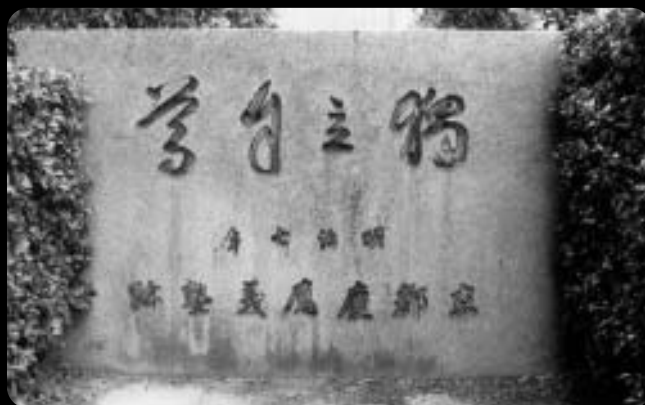 獨立自尊
明治七年
京都慶應義塾跡